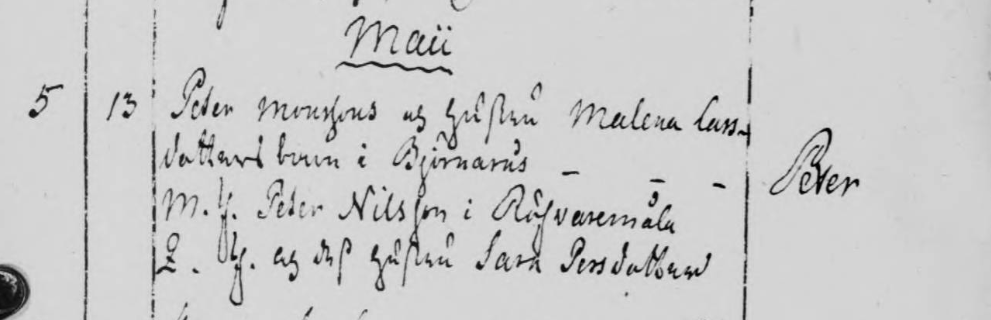 Maii
5 13 Peter Monsons og hustru Malena Lars-
dotters barn i Björnarus - - - Peter
M. Y. Peter Nilsson i Råsvaremåla
Q. Y. og dess hustru Sara Persdotter